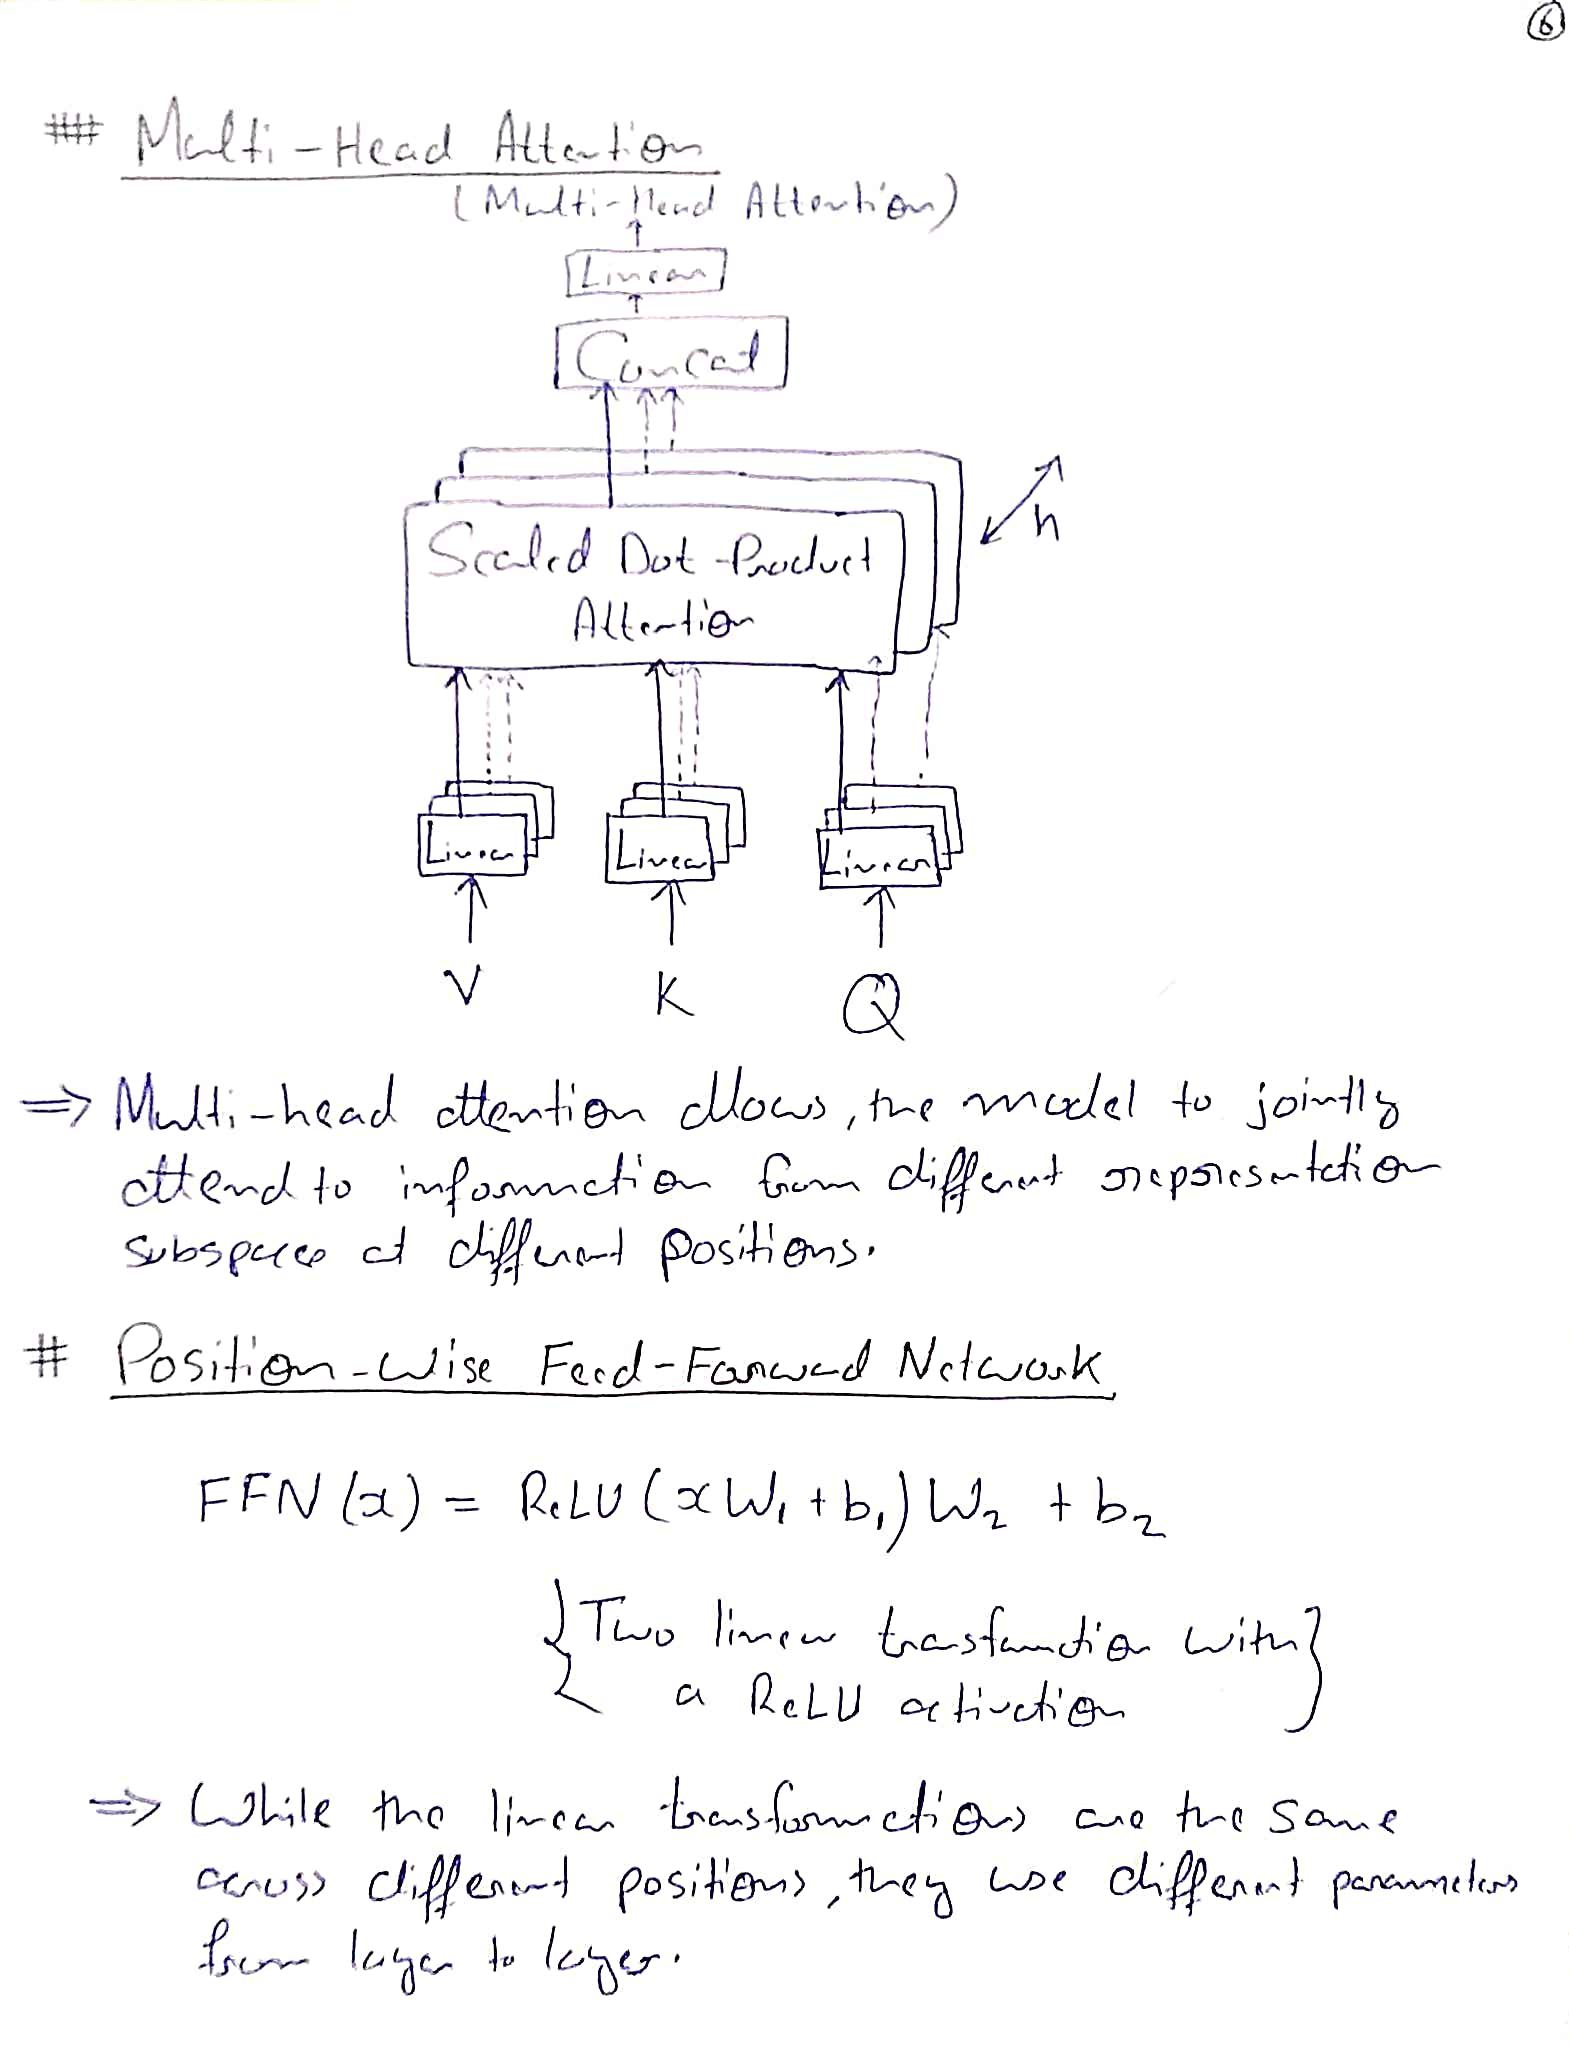 6
## Multi-Head Attention
(Multi-Head Attention)
Linear
Concat
h
Scaled Dot-Product
Attention
Linear Linear Linear
V K Q
⇒ Multi-head attention allows, the model to jointly
attend to information from different representation
subspaces at different positions.
# Position-Wise Feed-Forward Network
FFN(x) = ReLU(xW₁+b₁)W₂ + b₂
{Two linear trasformation with}
a ReLU activation
⇒ While the linear transformations are the same
across different positions, they use different parameters
from layer to layer.